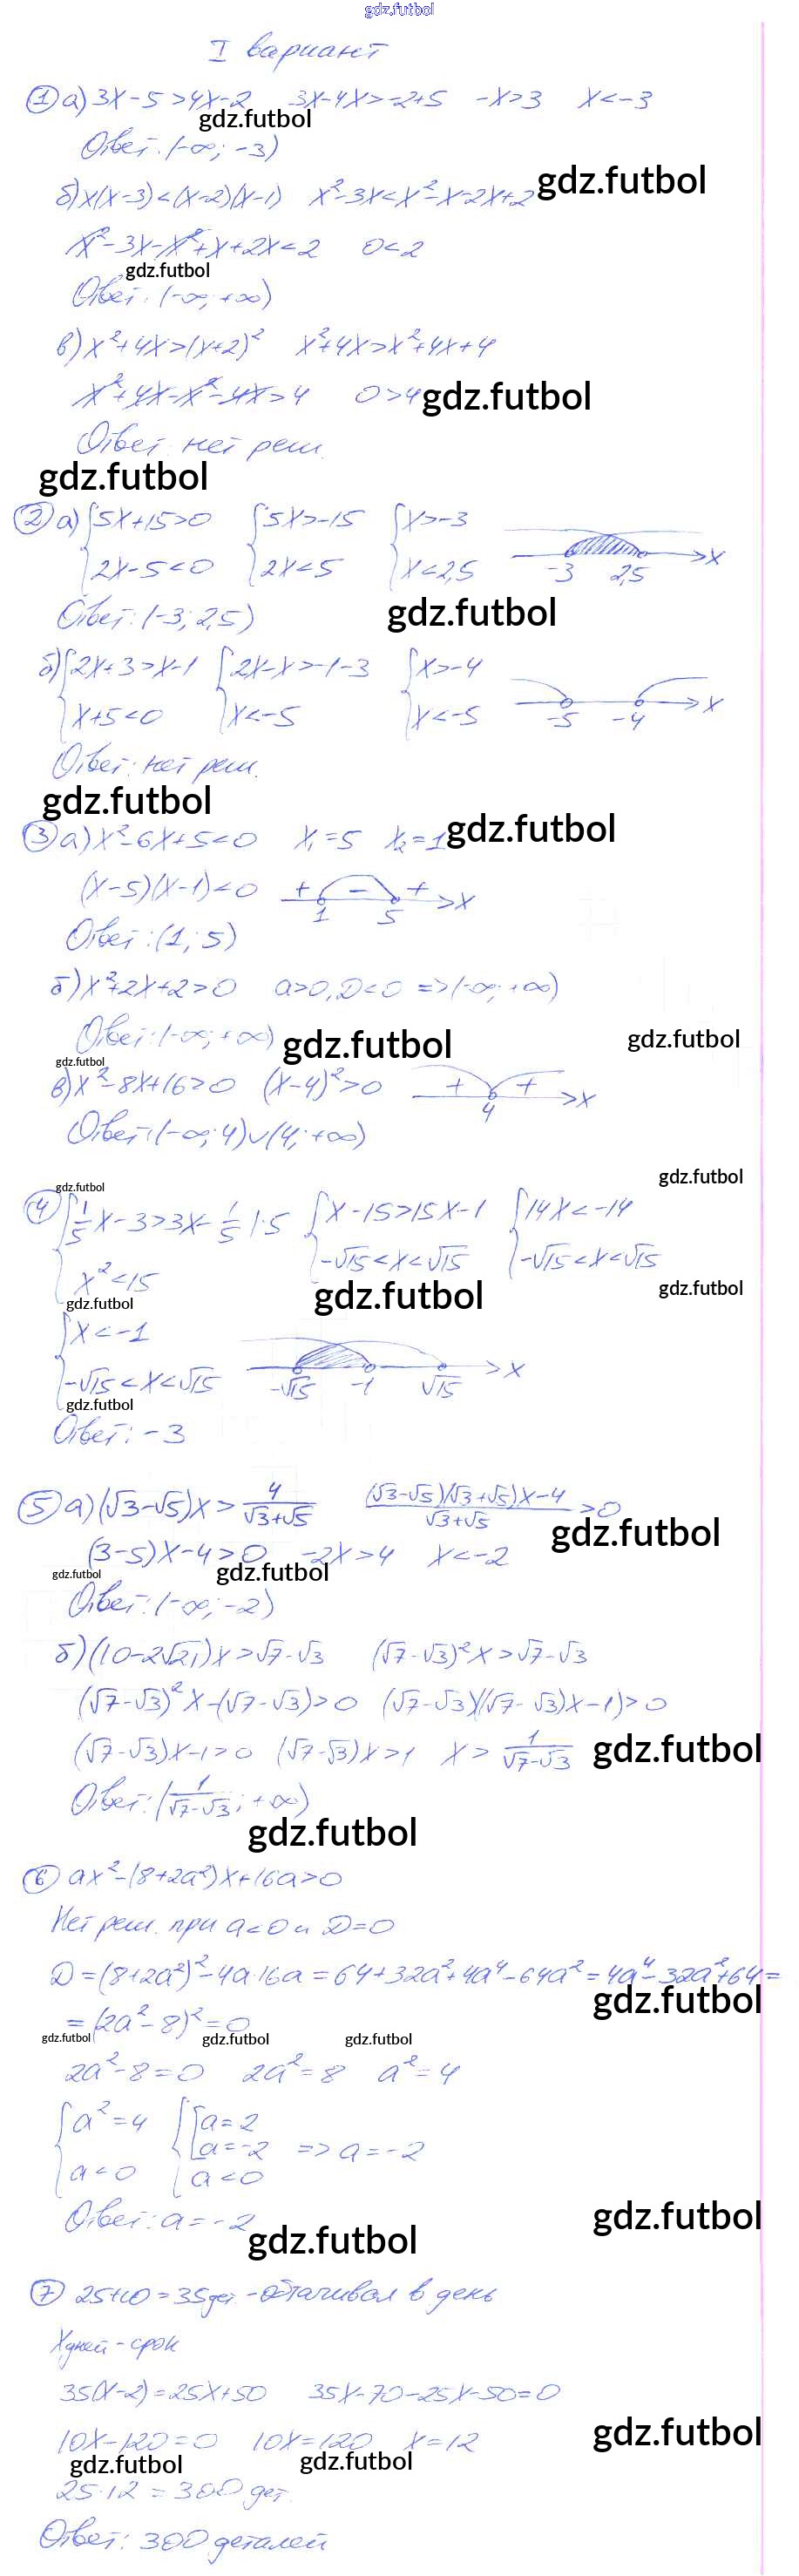 gdz.futbol
I вариант
① а) 3x-5>4x-2 3x-4x>-2+5 -x>3 x<-3
gdz.futbol
Ответ: (-∞; -3)
б) x(x-3)<(x-2)(x-1) x²-3x<x²-x-2x+2 gdz.futbol
x²-3x-x²+x+2x<2 0<2
gdz.futbol
Ответ: (-∞; +∞)
в) x²+4x>(x+2)² x²+4x>x²+4x+4
x²+4x-x²-4x>4 0>4 gdz.futbol
Ответ: нет реш.
gdz.futbol
② а) {5x+15>0 {5x>-15 {x>-3
{2x-5<0 {2x<5 {x<2,5 -3 2,5 x
Ответ: (-3; 2,5) gdz.futbol
б) {2x+3>x-1 {2x-x>-1-3 {x>-4
{x+5<0 {x<-5 {x<-5 -5 -4 x
Ответ: нет реш.
gdz.futbol
③ а) x²-6x+5<0 x₁=5 x₂=1 gdz.futbol
(x-5)(x-1)<0 + - + 1 5 x
Ответ: (1; 5)
б) x²+2x+2>0 a>0, D<0 => (-∞; +∞)
Ответ: (-∞; +∞) gdz.futbol gdz.futbol
gdz.futbol
в) x²-8x+16>0 (x-4)²>0 + + 4 x
Ответ: (-∞; 4)∪(4; +∞)
gdz.futbol gdz.futbol
④ {1/5 x-3>3x-1/5 |·5 {x-15>15x-1 {14x<-14
{x²<15 {-√15<x<√15 {-√15<x<√15
gdz.futbol gdz.futbol gdz.futbol
{x<-1
{-√15<x<√15 -√15 -1 √15 x
gdz.futbol
Ответ: -3
⑤ а) (√3-√5)x > 4/(√3+√5) ((√3-√5)(√3+√5)x-4)/(√3+√5) >0
gdz.futbol
(3-5)x-4>0 -2x>4 x<-2
gdz.futbol gdz.futbol
Ответ: (-∞; -2)
б) (10-2√21)x>√7-√3 (√7-√3)²x>√7-√3
(√7-√3)²x-(√7-√3)>0 (√7-√3)((√7-√3)x-1)>0
(√7-√3)x-1>0 (√7-√3)x>1 x > 1/(√7-√3) gdz.futbol
Ответ: (1/(√7-√3); +∞)
gdz.futbol
⑥ ax²-(8+2a²)x+16a>0
Нет реш. при a<0 и D=0
D=(8+2a²)²-4a·16a=64+32a²+4a⁴-64a²=4a⁴-32a²+64=
gdz.futbol
=(2a²-8)²=0
gdz.futbol gdz.futbol gdz.futbol
2a²-8=0 2a²=8 a²=4
{a²=4 {[a=2
[a=-2 => a=-2
{a<0 {a<0
Ответ: a=-2 gdz.futbol
gdz.futbol
⑦ 25+10=35 дет. - обтачивал в день
x дней - срок
35(x-2)=25x+50 35x-70-25x-50=0
10x-120=0 10x=120 x=12 gdz.futbol
gdz.futbol gdz.futbol
25·12=300 дет.
Ответ: 300 деталей